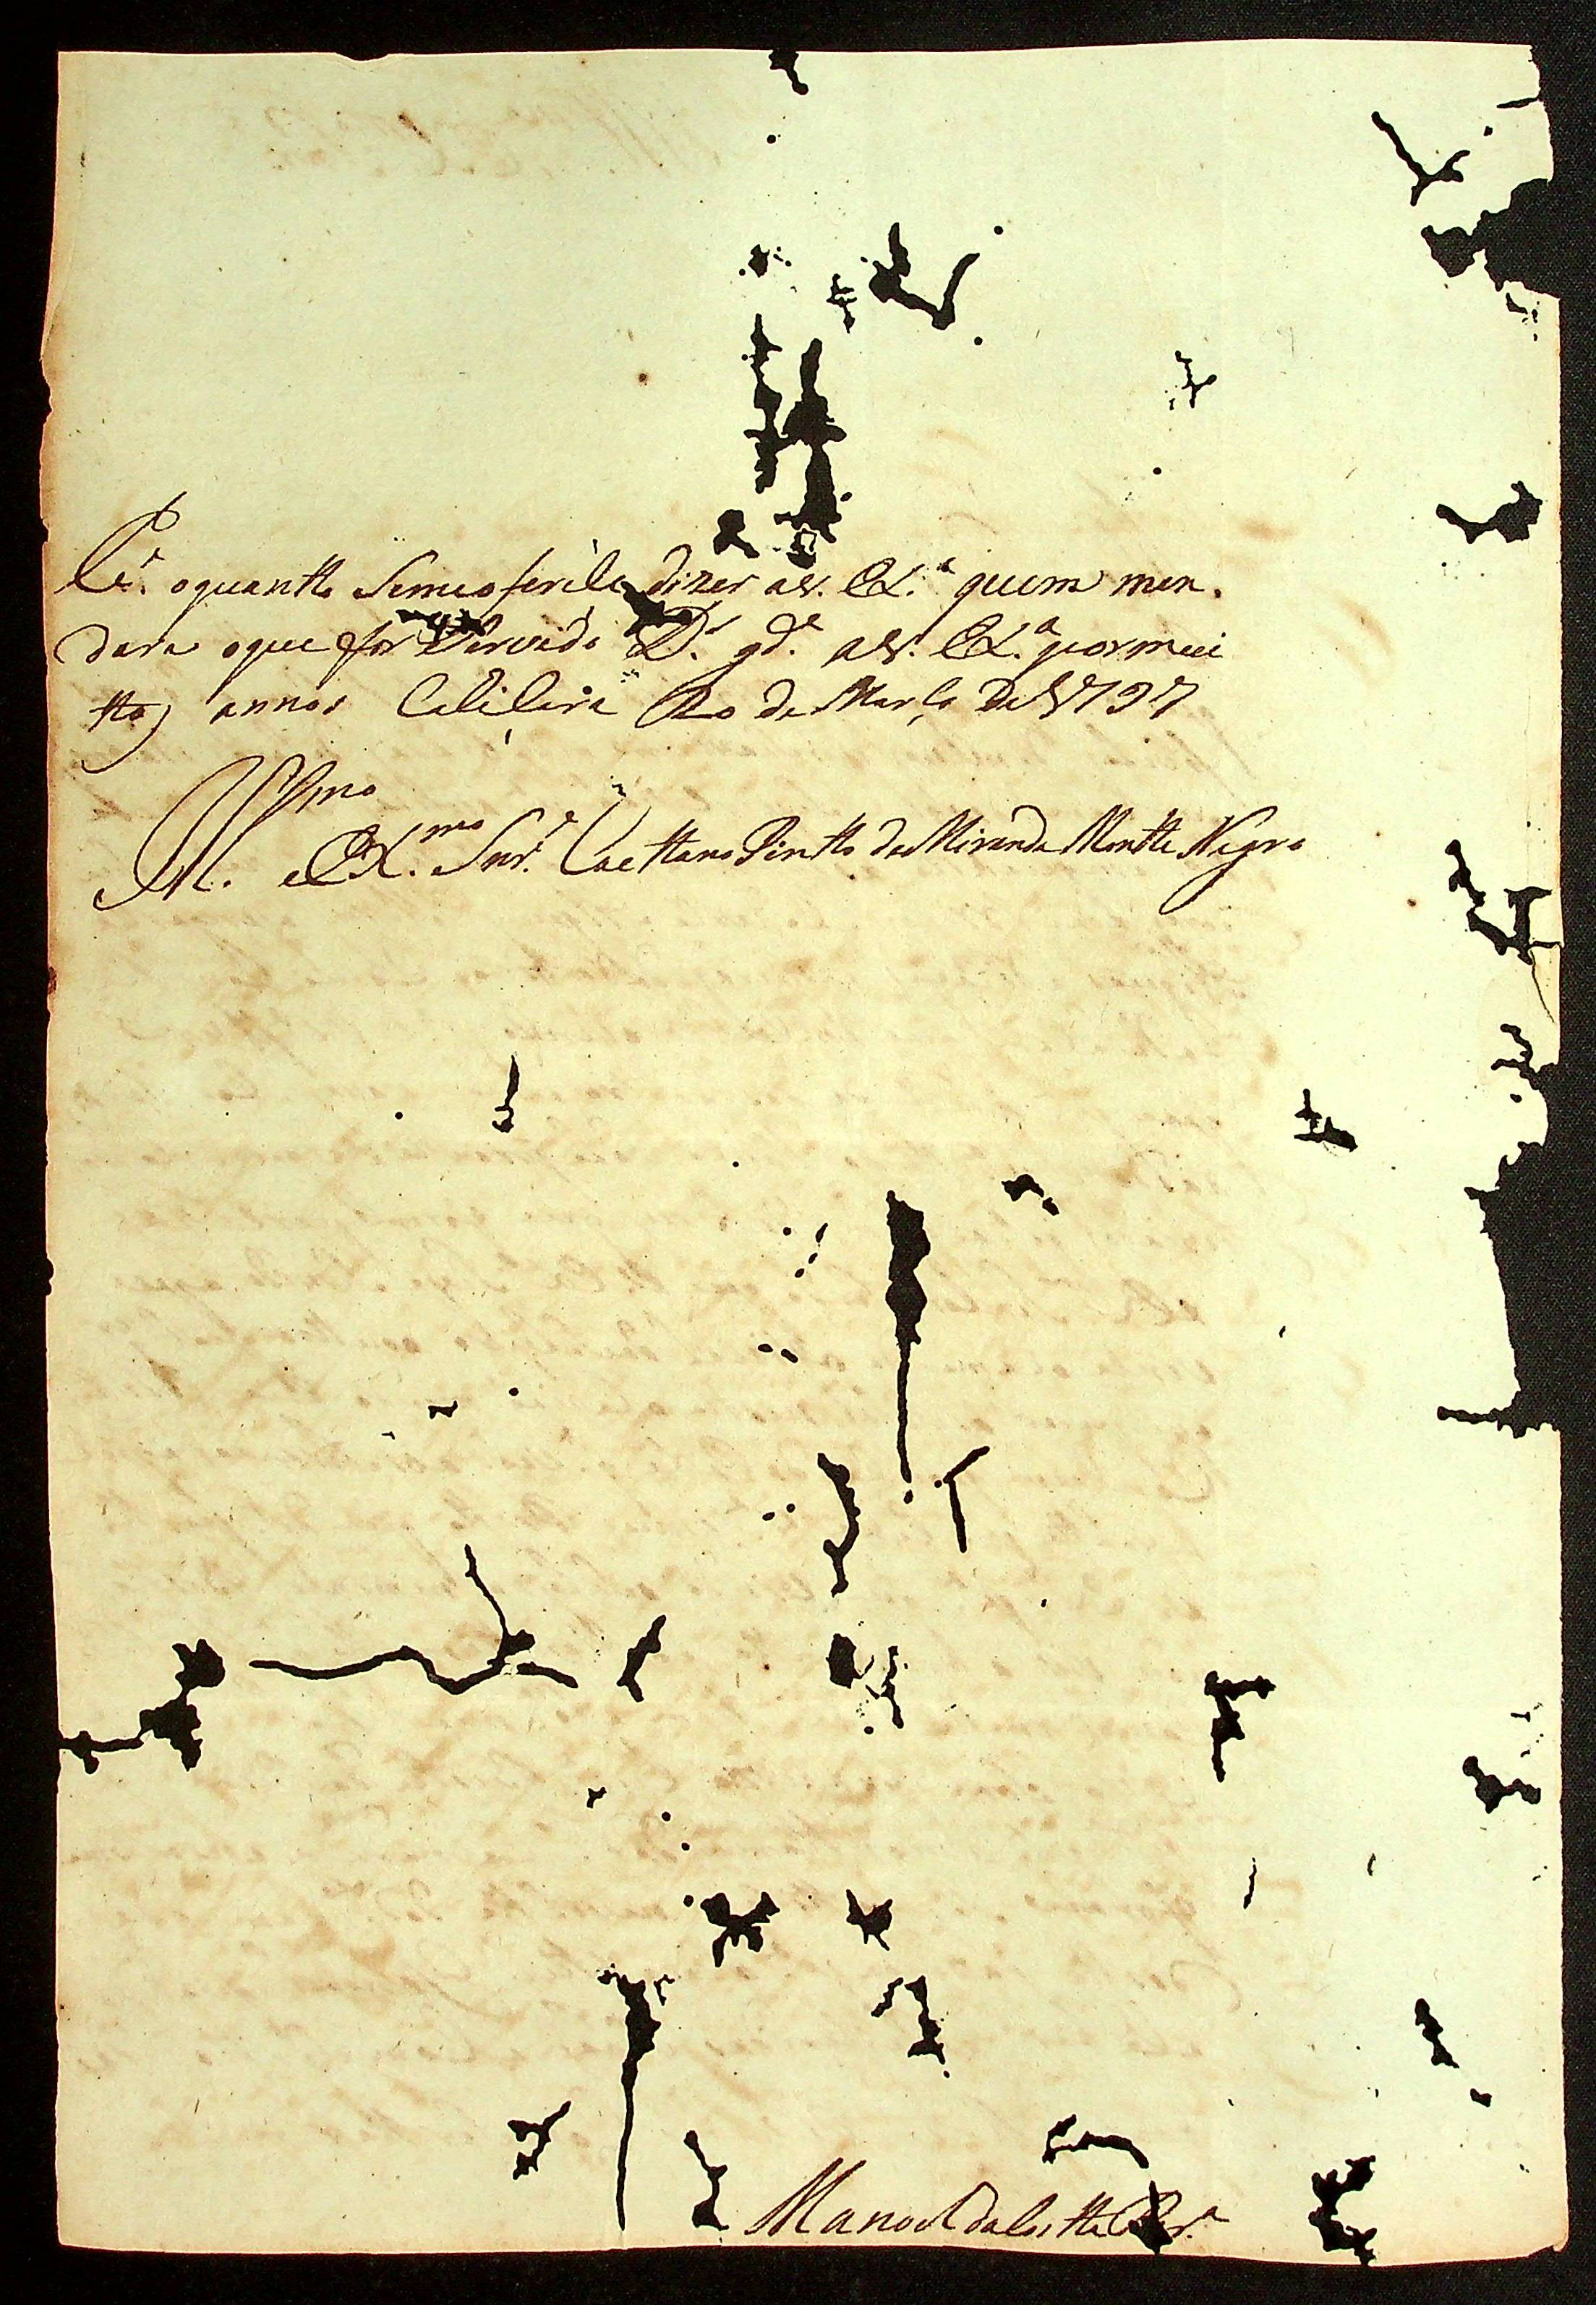 he. oquantto Semeoferese dizer aV. Ex.ª quem man.
dara oque for Servido D.s gd.e aV. Ex.ª pormui
ttos annos 20 de Março De1797
Ill.mo
e Ex.mo Snr.' Caettano Pintto deMiranda Montte Negro
Manoel daCostta Per.ª